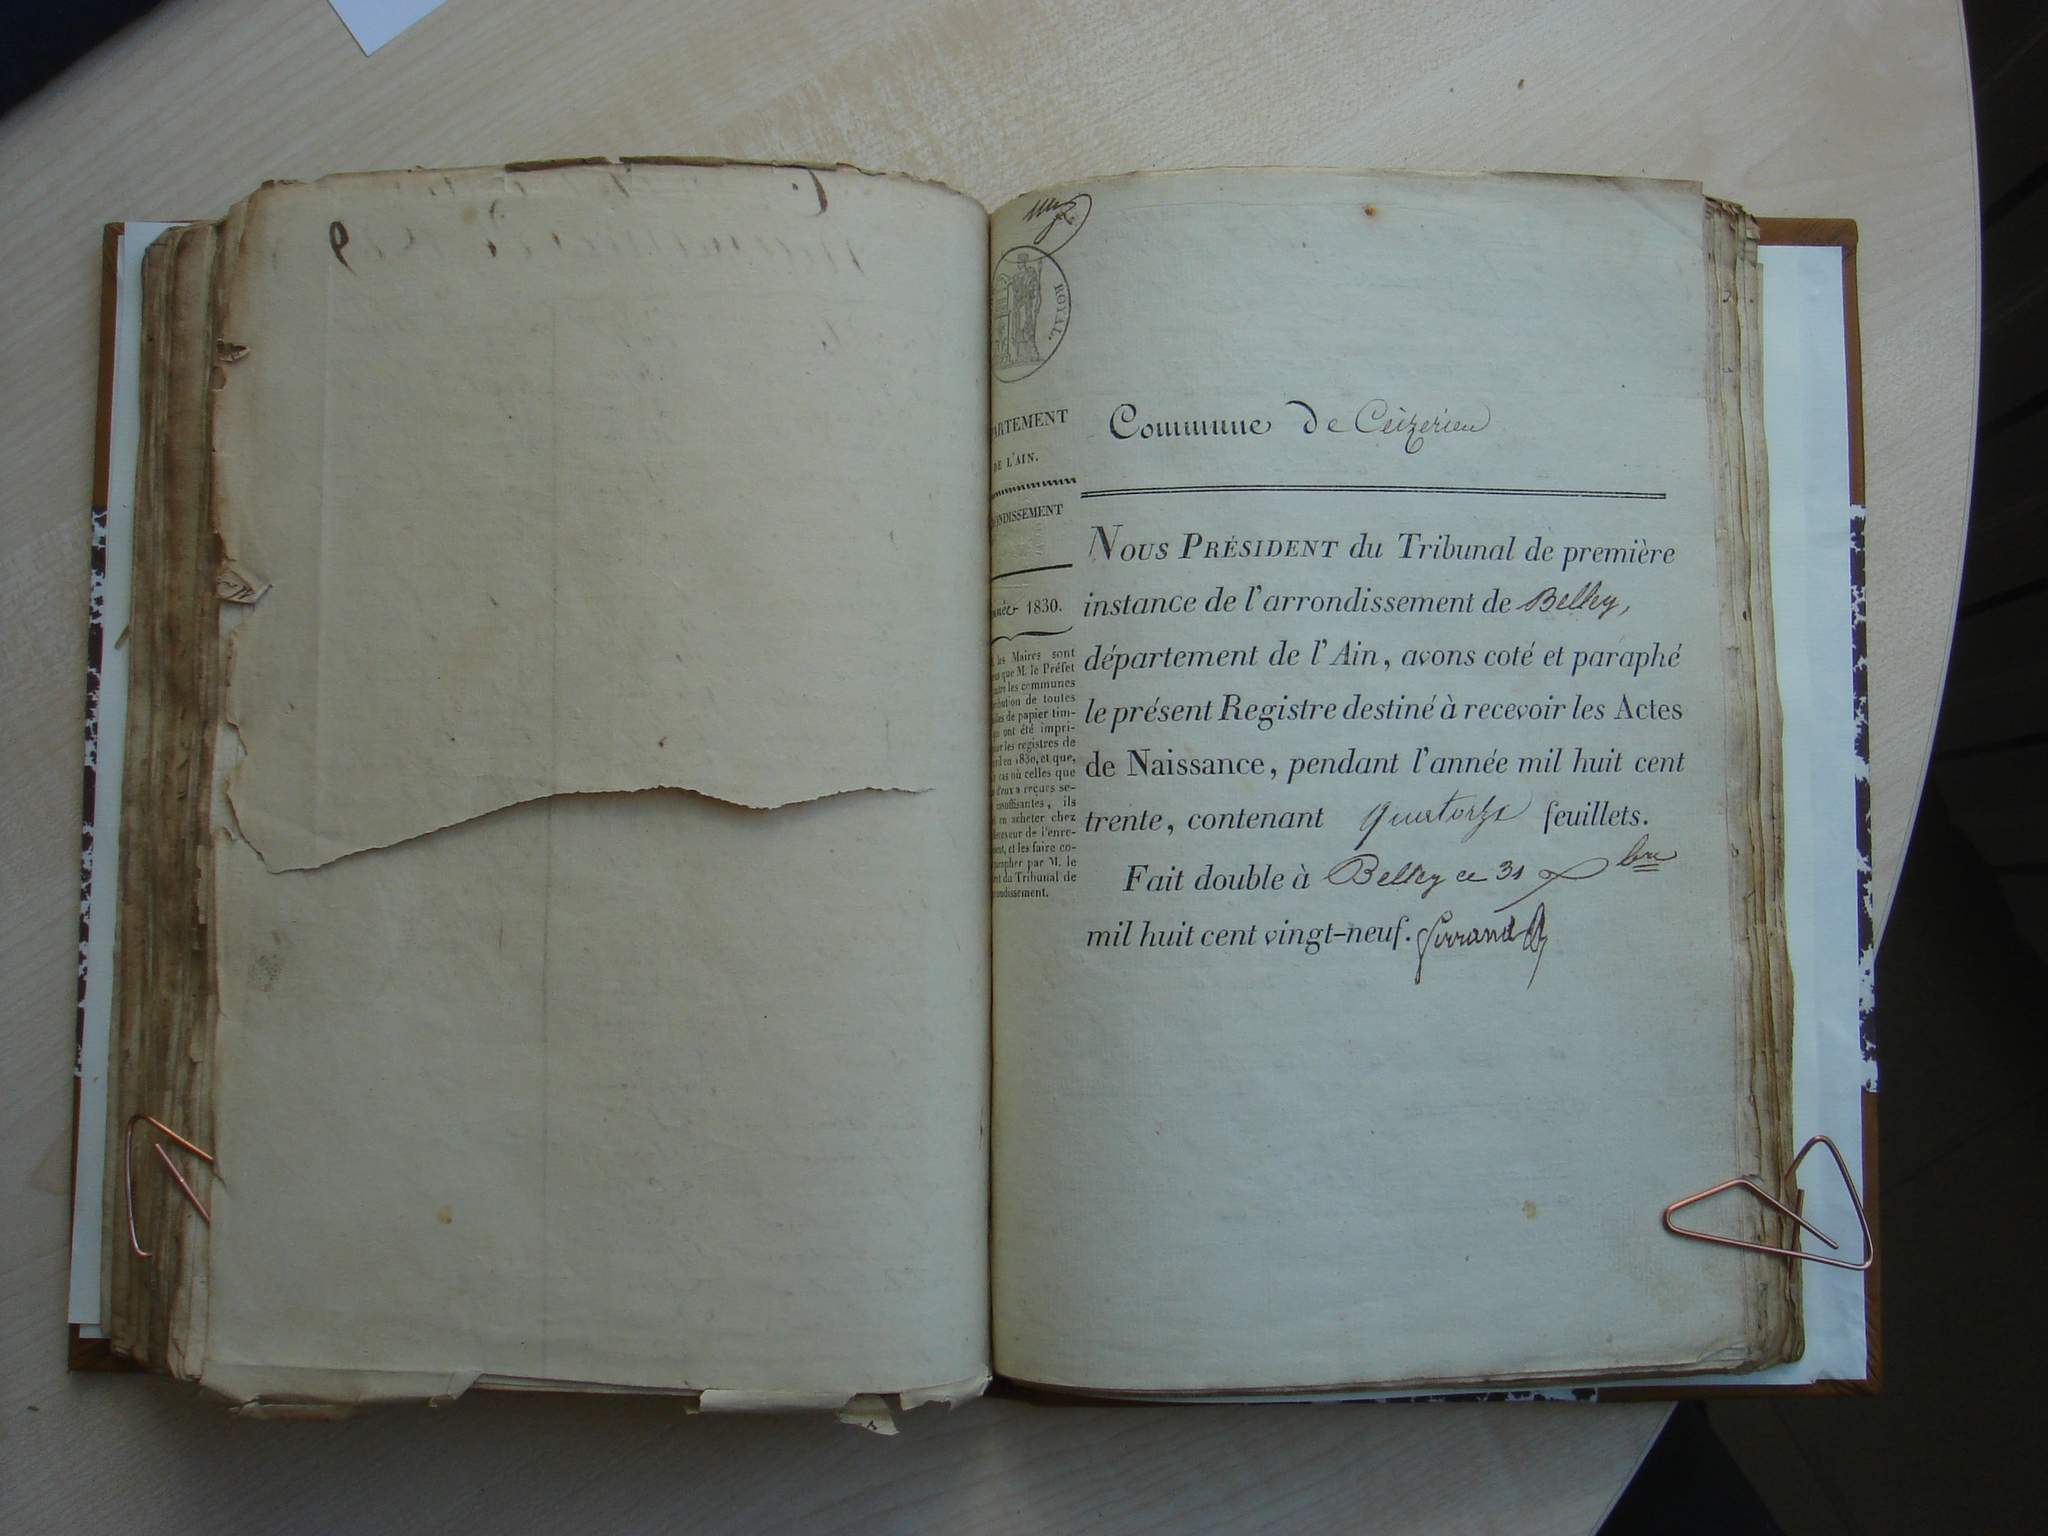 ROYAL.
ARTEMENT
DE L'AIN.
NDISSEMENT
1830.
les Maires sont
que M. le Préfet
les communes
bution de toutes
les de papier tim-
ont été impri-
les registres de
en 1830, et que,
cas où celles que
d'eux a reçues se-
insuffisantes, ils
en acheter chez
de l'enre-
et les faire co-
parapher par M. le
du Tribunal de
ondissement.
Commune de Ceizérieu
NOUS PRÉSIDENT du Tribunal de première
instance de l'arrondissement de Belley,
département de l'Ain, avons coté et paraphé
le présent Registre destiné à recevoir les Actes
de Naissance, pendant l'année mil huit cent
trente, contenant quatorze feuillets.
Fait double à Belley ce 31 Xbre
mil huit cent vingt-neuf.